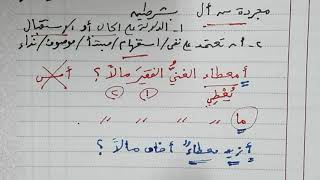 مجردة من أل بشرطين
١- الدلالة على الحال أو الاستقبال
٢- أن تعتمد على نفي/استفهام/مبتدأ/موصوف/نداء
أمعطاء الغنيُّ الفقيرَ مالاً؟ أمس
يُعْطِي ① ②
ما " " " "
أزيد معطاءٌ أخاه مالاً؟